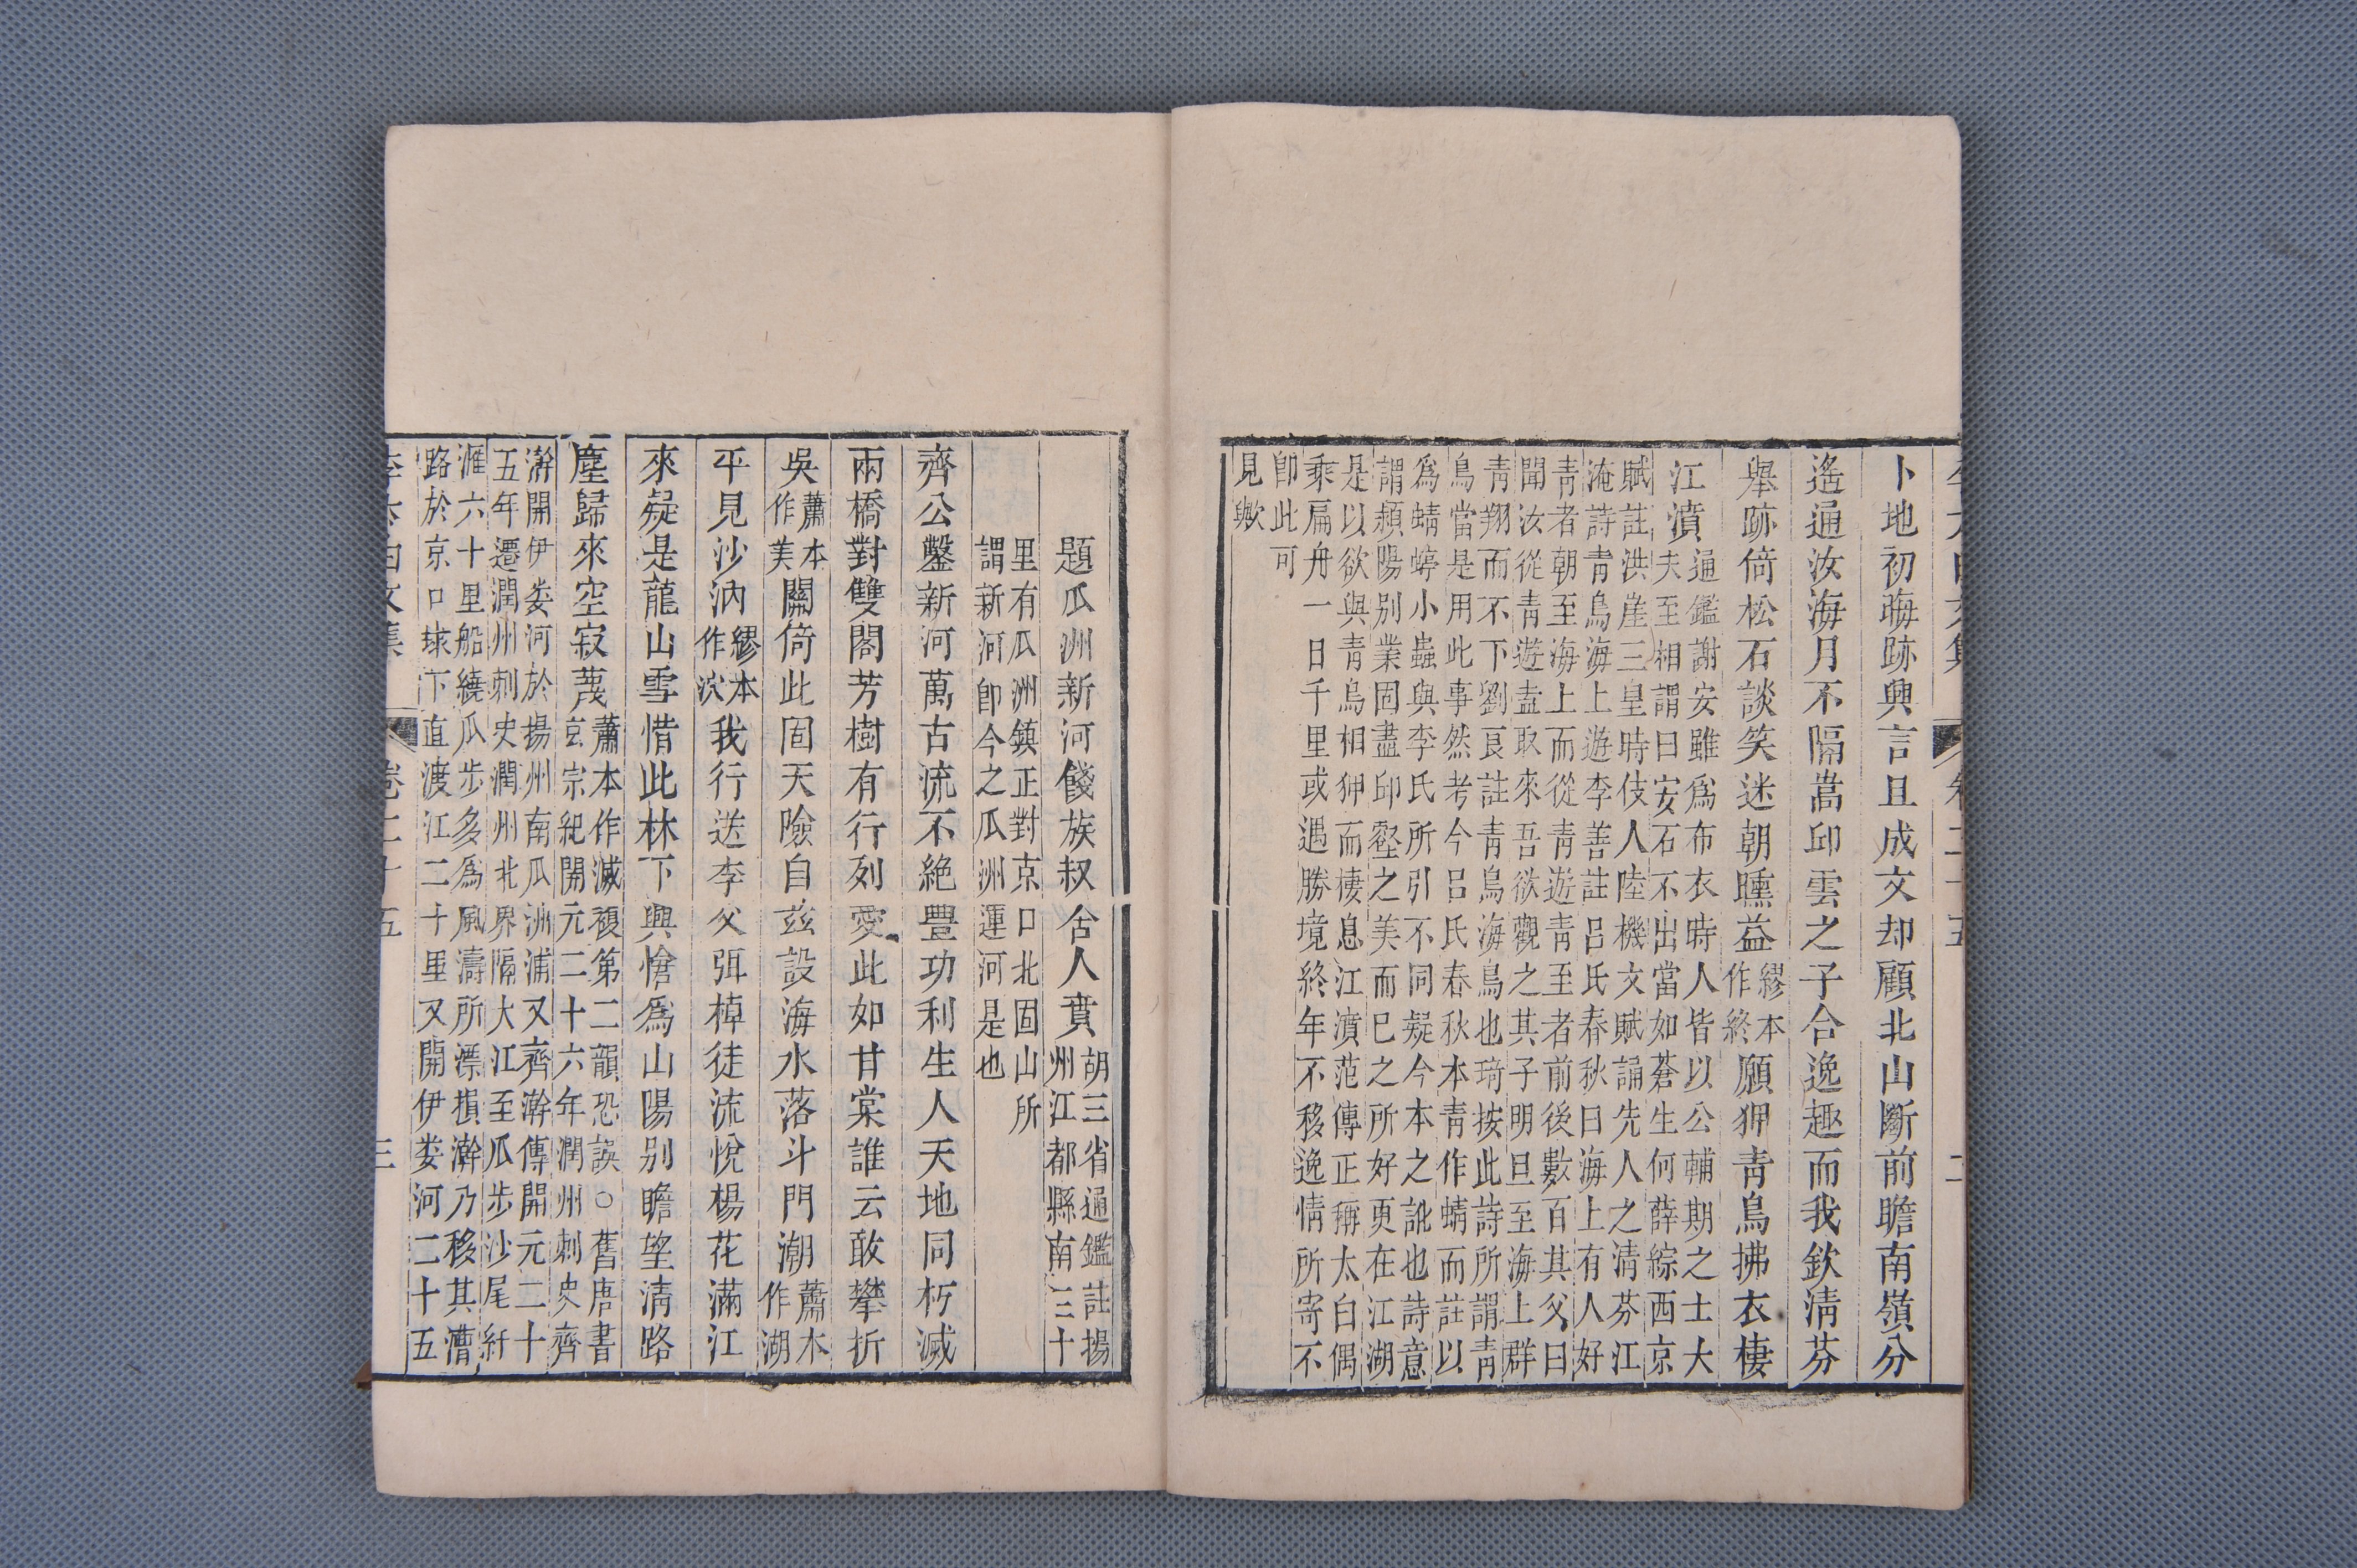 卜地初晦跡興言且成文却顧北山斷前瞻南嶺分
遙通汝海月不隔嵩邱雲之子合逸趣而我欽清芬
舉跡倚松石談笑迷朝曛益繆本作終願狎青鳥拂衣棲
江濆通鑑謝安雖爲布衣時人皆以公輔期之士大
夫至相謂曰安石不出當如蒼生何薛綜西京
賦註洪崖三皇時伎人陸機文賦誦先人之清芬江
淹詩青鳥海上遊李善註呂氏春秋曰海上有人好
青者朝至海上而從青遊青至者前後數百其父曰
聞汝從青遊盍取來吾欲觀之其子明旦至海上群
青翔而不下劉良註青鳥海鳥也琦按此詩所謂青
鳥當是用此事然考今呂氏春秋本青作蜻而註以
爲蜻蜓小蟲與李氏所引不同疑今本之訛也詩意
謂潁陽別業固盡邱壑之美而已之所好更在江湖
是以欲與青鳥相狎而棲息江濆范傳正稱太白偶
乘扁舟一日千里或遇勝境終年不移逸情所寄不
卽此可
見歟
題瓜洲新河餞族叔舍人賁胡三省通鑑註揚
州江都縣南三十
里有瓜洲鎮正對京口北固山所
謂新河卽今之瓜洲運河是也
齊公鑿新河萬古流不絕豐功利生人天地同朽滅
兩橋對雙閣芳樹有行列愛此如甘棠誰云敢攀折
吳蕭本作美關倚此固天險自茲設海水落斗門潮蕭本作湖
平見沙汭繆本作泬我行送季父弭棹徒流悅楊花滿江
來疑是龍山雪惜此林下興愴爲山陽別瞻望清路
塵歸來空寂蔑蕭本作滅複第二韻恐誤○舊唐書
玄宗紀開元二十六年潤州刺史齊
澣開伊婁河於揚州南瓜洲浦又齊澣傳開元二十
五年遷潤州刺史潤州北界隔大江至瓜步沙尾紆
滙六十里船繞瓜步多爲風濤所漂損澣乃移其漕
路於京口埭下直渡江二十里又開伊婁河二十五
卷二十五
三